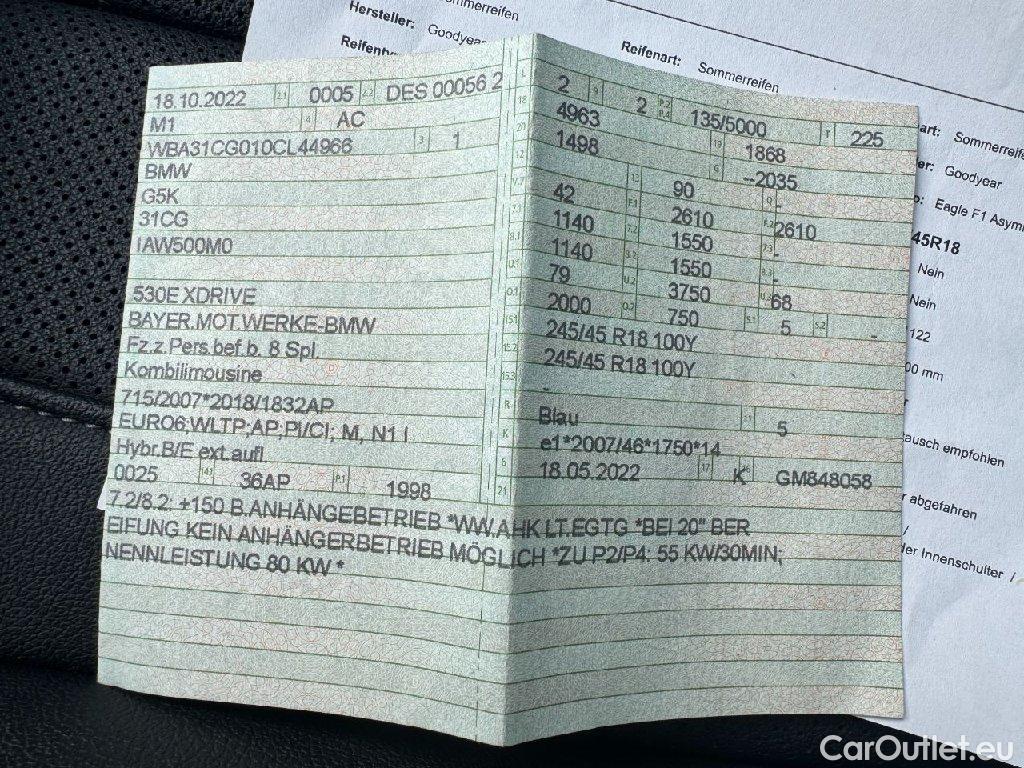 Sommerreifen
Hersteller: Goodyear
Reifenart: Sommerreifen
18.10.2022 2.1 0005 2.2 DES 00056 2
M1 4 AC
WBA31CG010CL44966 3 1
BMW
G5K
31CG
IAW500M0
530E XDRIVE
BAYER.MOT.WERKE-BMW
Fz.z.Pers.bef.b. 8 Spl
Kombilimousine
715/2007*2018/1832AP
EURO6;WLTP;AP,PI/CI; M, N1 I
Hybr.B/E ext.aufl
0025 36AP P.1 1998
L 2 9 2 P.2 P.4 135/5000 T 225
18 4963 19 1868
20 1498 G --2035
12 - 13 90 Q -
V.7 42 F.1 2610 F.2 2610
7.1 1140 7.2 1550 7.3 -
8.1 1140 8.2 1550 8.3 -
U.1 79 U.2 3750 U.3 68
O.1 2000 O.2 750 S.1 5 S.2 -
15.1 245/45 R18 100Y
15.2 245/45 R18 100Y
15.3 -
R Blau 11 5
K e1*2007/46*1750*14
6 18.05.2022 17 K 16 GM848058
21
7.2/8.2: +150 B.ANHÄNGEBETRIEB *WW.AHK LT.EGTG *BEI 20" BER
EIFUNG KEIN ANHÄNGERBETRIEB MÖGLICH *ZU P2/P4: 55 KW/30MIN;
NENNLEISTUNG 80 KW *
art: Sommerreife
er: Goodyear
Eagle F1 Asymm
45R18
Nein
Nein
122
00 mm
tausch empfohlen
r abgefahren
der Innenschulter /
CarOutlet.eu